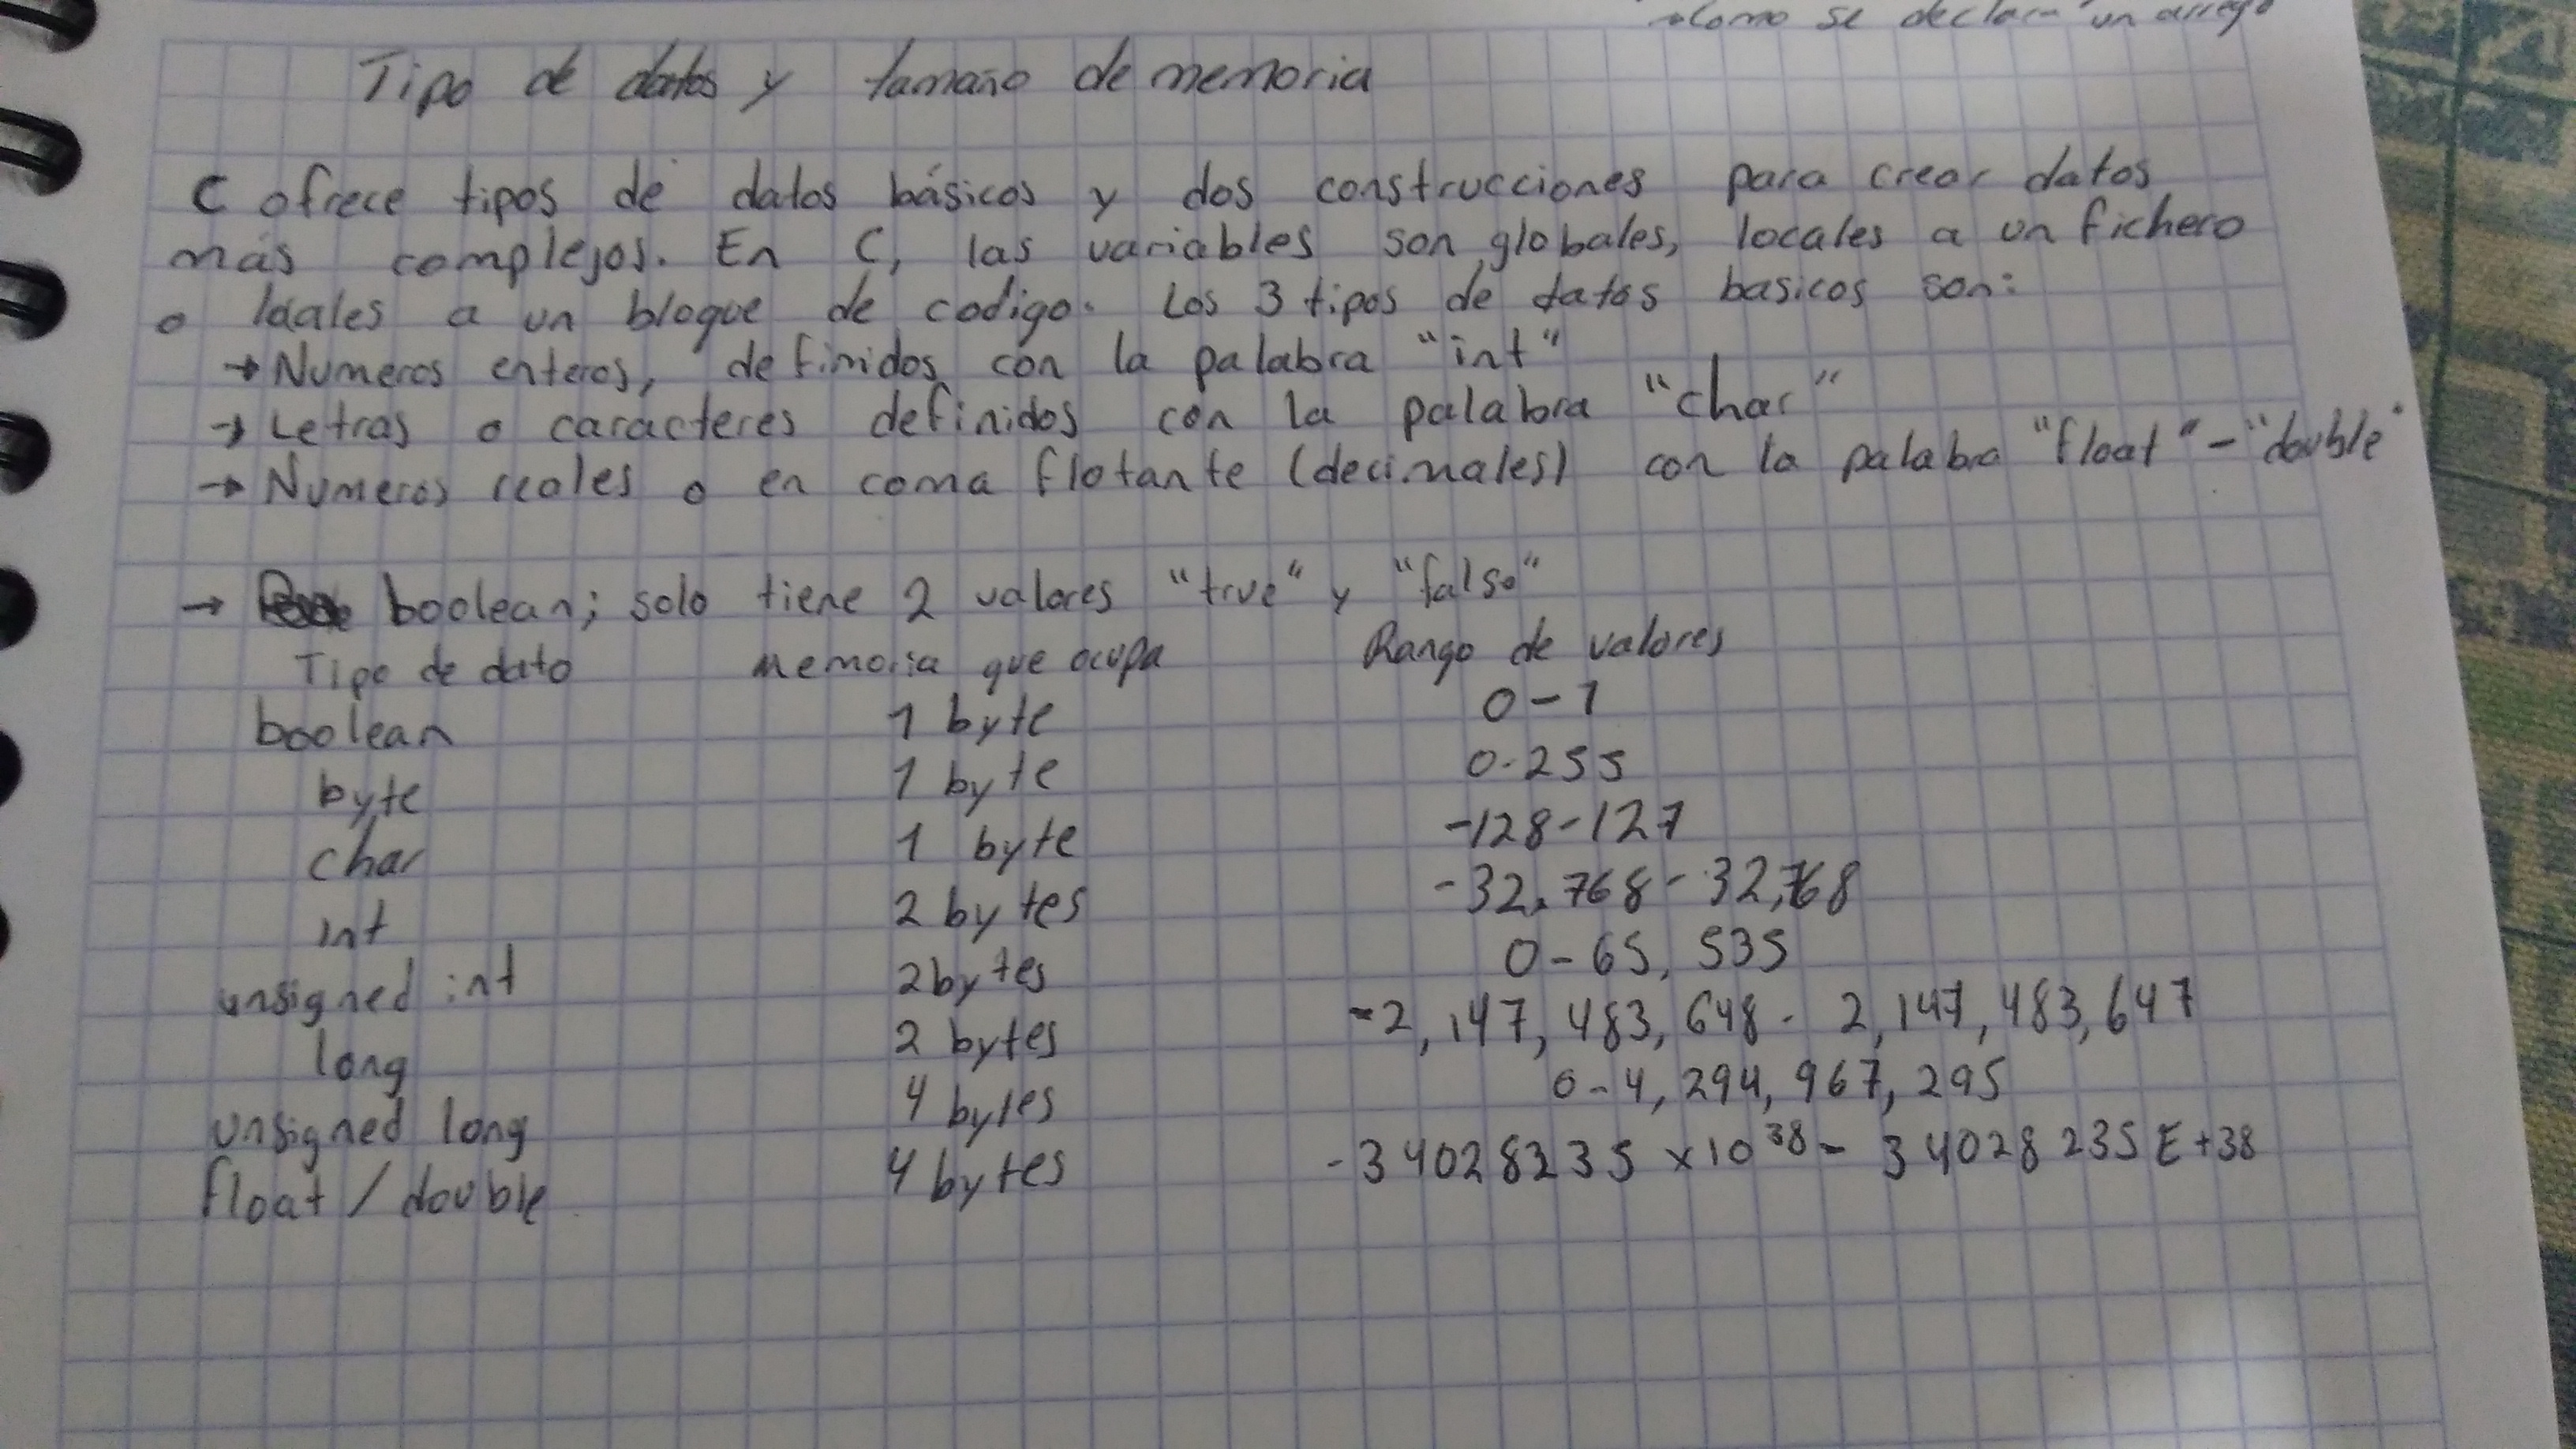 →Como se declara un arreglo
Tipo de datos y tamaño de memoria
C ofrece tipos de datos básicos y dos construcciones para crear datos
más complejos. En C, las variables son globales, locales a un fichero
o locales a un bloque de codigo. Los 3 tipos de datos basicos son:
→ Numeros enteros, definidos con la palabra "int"
→ Letras o caracteres definidos con la palabra "char"
→ Numeros reales o en coma flotante (decimales) con la palabra "float" - "double"
→ boolean; solo tiene 2 valores "true" y "falso"
Tipo de dato memoria que ocupa Rango de valores
boolean 1 byte 0-1
byte 1 byte 0-255
char 1 byte -128-127
int 2 bytes -32,768-32,768
unsigned int 2bytes 0-65,535
long 2 bytes -2,147,483,648-2,147,483,647
unsigned long 4 bytes 0-4,294,967,295
float / double 4 bytes -34028235 x10^38 - 34028235E+38